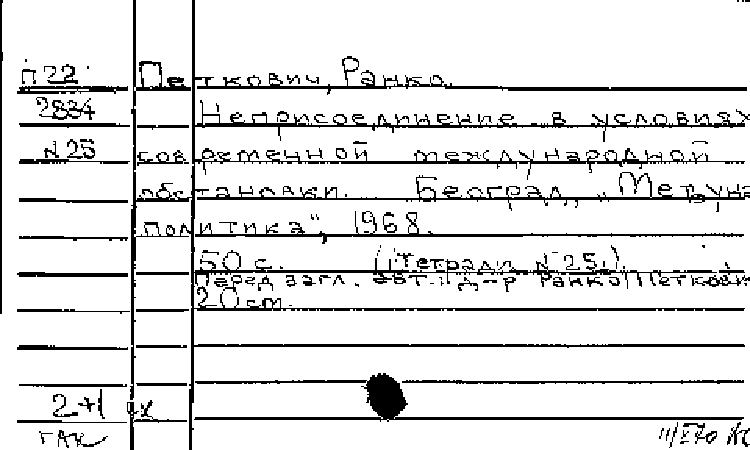 П22 Петкович, Ранко.
2884 Неприсоединение в условиях
N25 современной международной
обстановки. Београд, „Међуна
политика", 1968.
50 с. (Тетради N 25.)
Перед загл. авт.: д-р Ранко Петкови
20 cm.
2+1
ГАК 11/X70